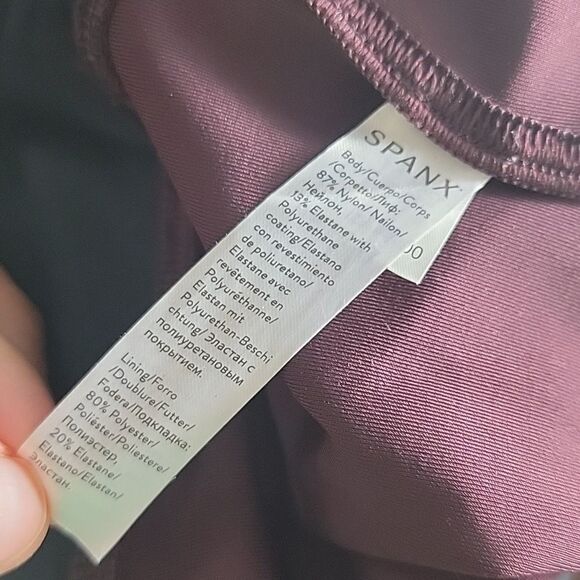 SPANX
Body/Cuerpo/Corps
/Corpetto/Лиф:
87% Nylon/ Nailon/
Нейлон,
13% Elastane with
Polyurethane
coating/Elastano
con revestimiento
de poliuretano/
Elastane avec
revêtement en
Polyuréthanne/
Elastan mit
Polyurethan-Beschi
chtung/ Эластан с
полиуретановым
покрытием.
Lining/Forro
/Doublure/Futter/
Fodera/Подкладка:
80% Polyester/
Poliéster/Poliestere/
полиэстер,
20% Elastane/
Elastano/Elastan/
Эластан.
00